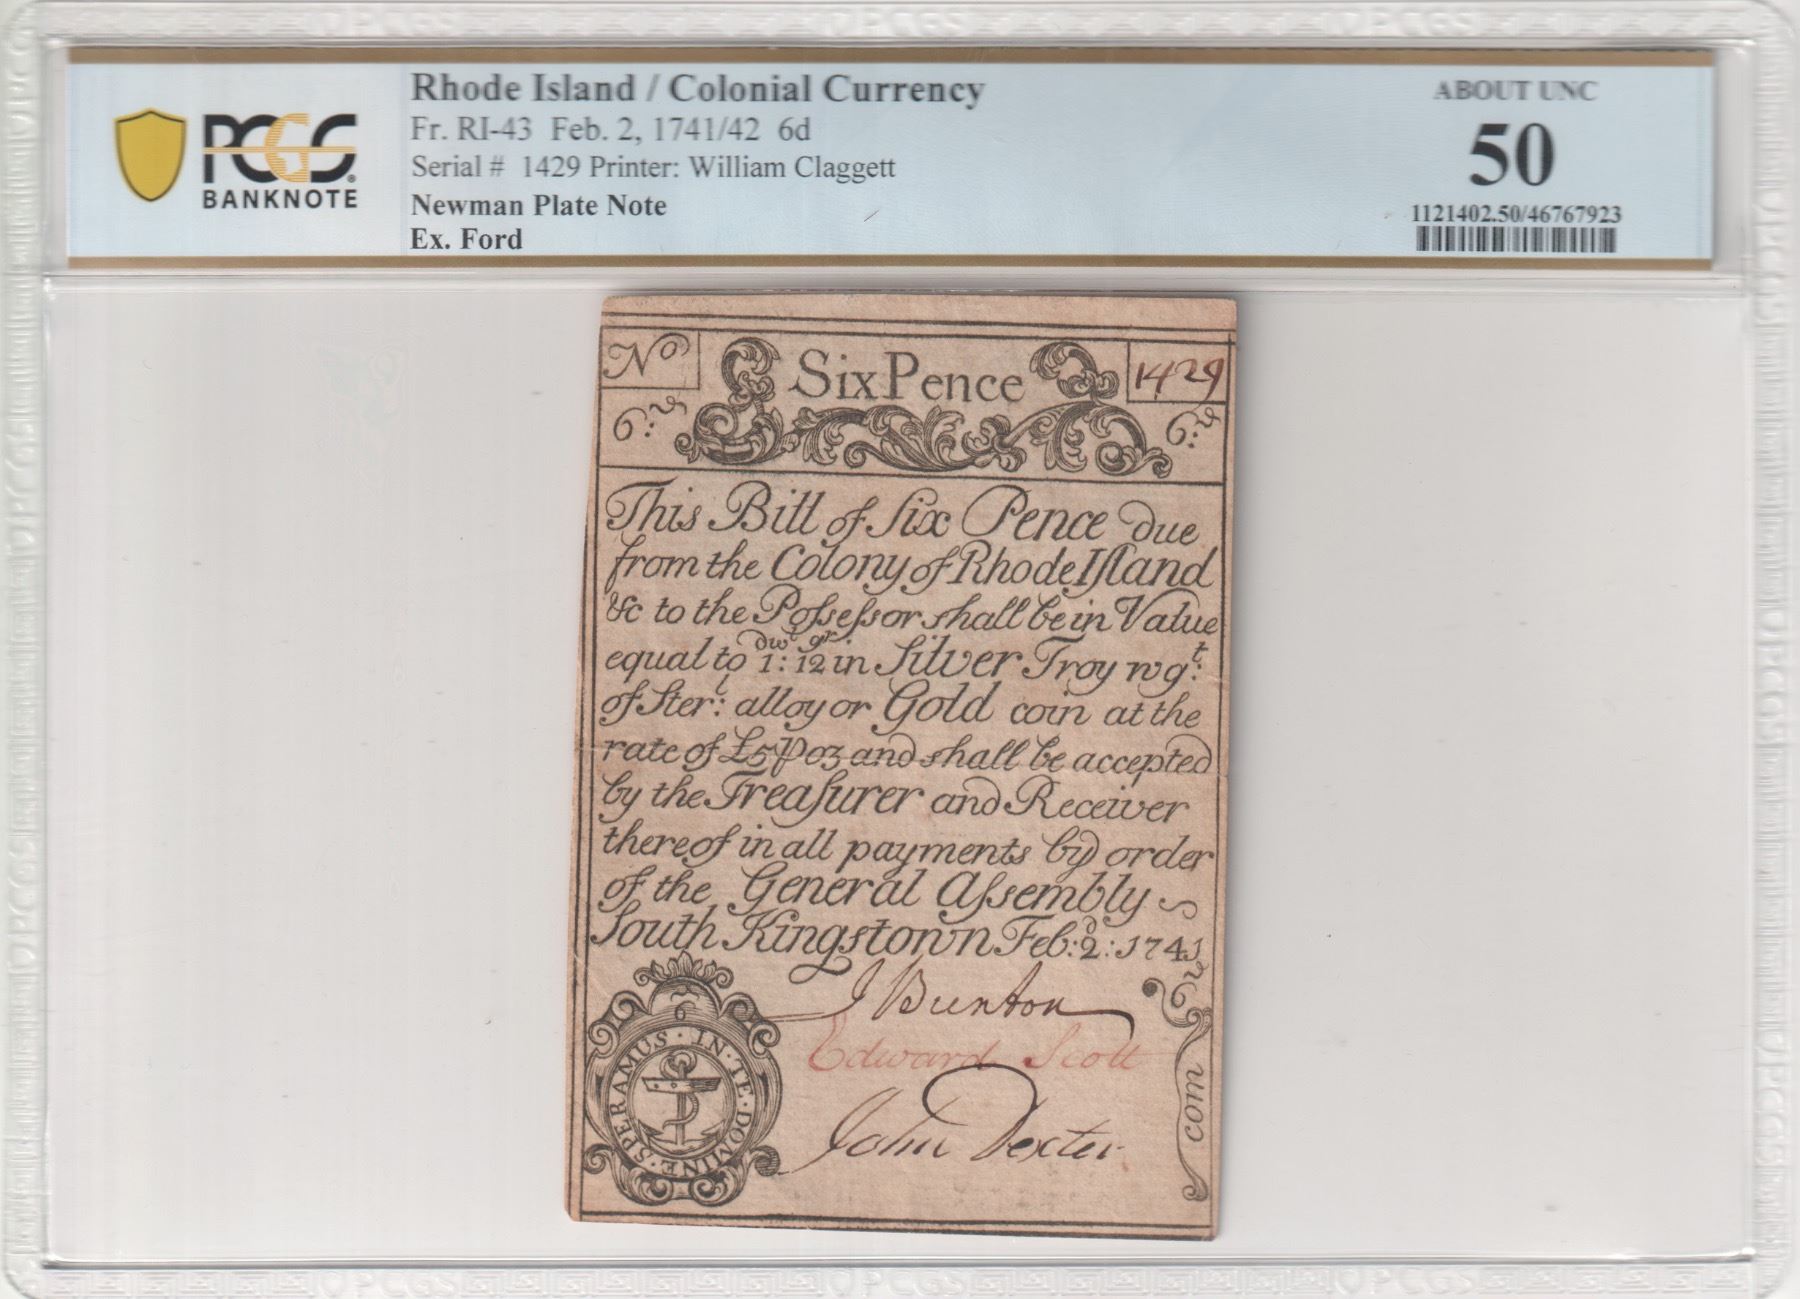 Rhode Island / Colonial Currency
Fr. RI-43 Feb. 2, 1741/42 6d
Serial # 1429 Printer: William Claggett
Newman Plate Note
Ex. Ford
PCGS
BANKNOTE
ABOUT UNC
50
1121402.50/46767923
No
Six Pence
1429
6:
6:
This Bill of Six Pence due
from the Colony of Rhode Iſland
&c to the Poſseſsor shall be in Value
dwt gr.
equal to 1:12 in Silver Troy wgt:
of Sterl: alloy or Gold coin at the
rate of £5 p oz and shall be accepted
by the Treaſurer and Receiver
thereof in all payments by order
of the General Aſsembly
South Kingstown Feb:d 2: 1741
J Brenton
Edward Scott
John Dexter
6
IN TE DOMINE SPERAMUS
6
com
PCGS